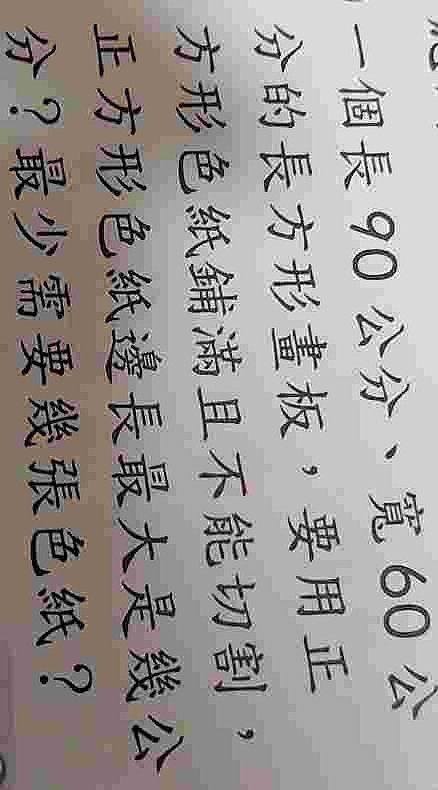 一個長 90 公分、寬 60 公
分的長方形畫板，要用正
方形色紙鋪滿且不能切割，
正方形色紙邊長最大是幾公
分？最少需要幾張色紙？